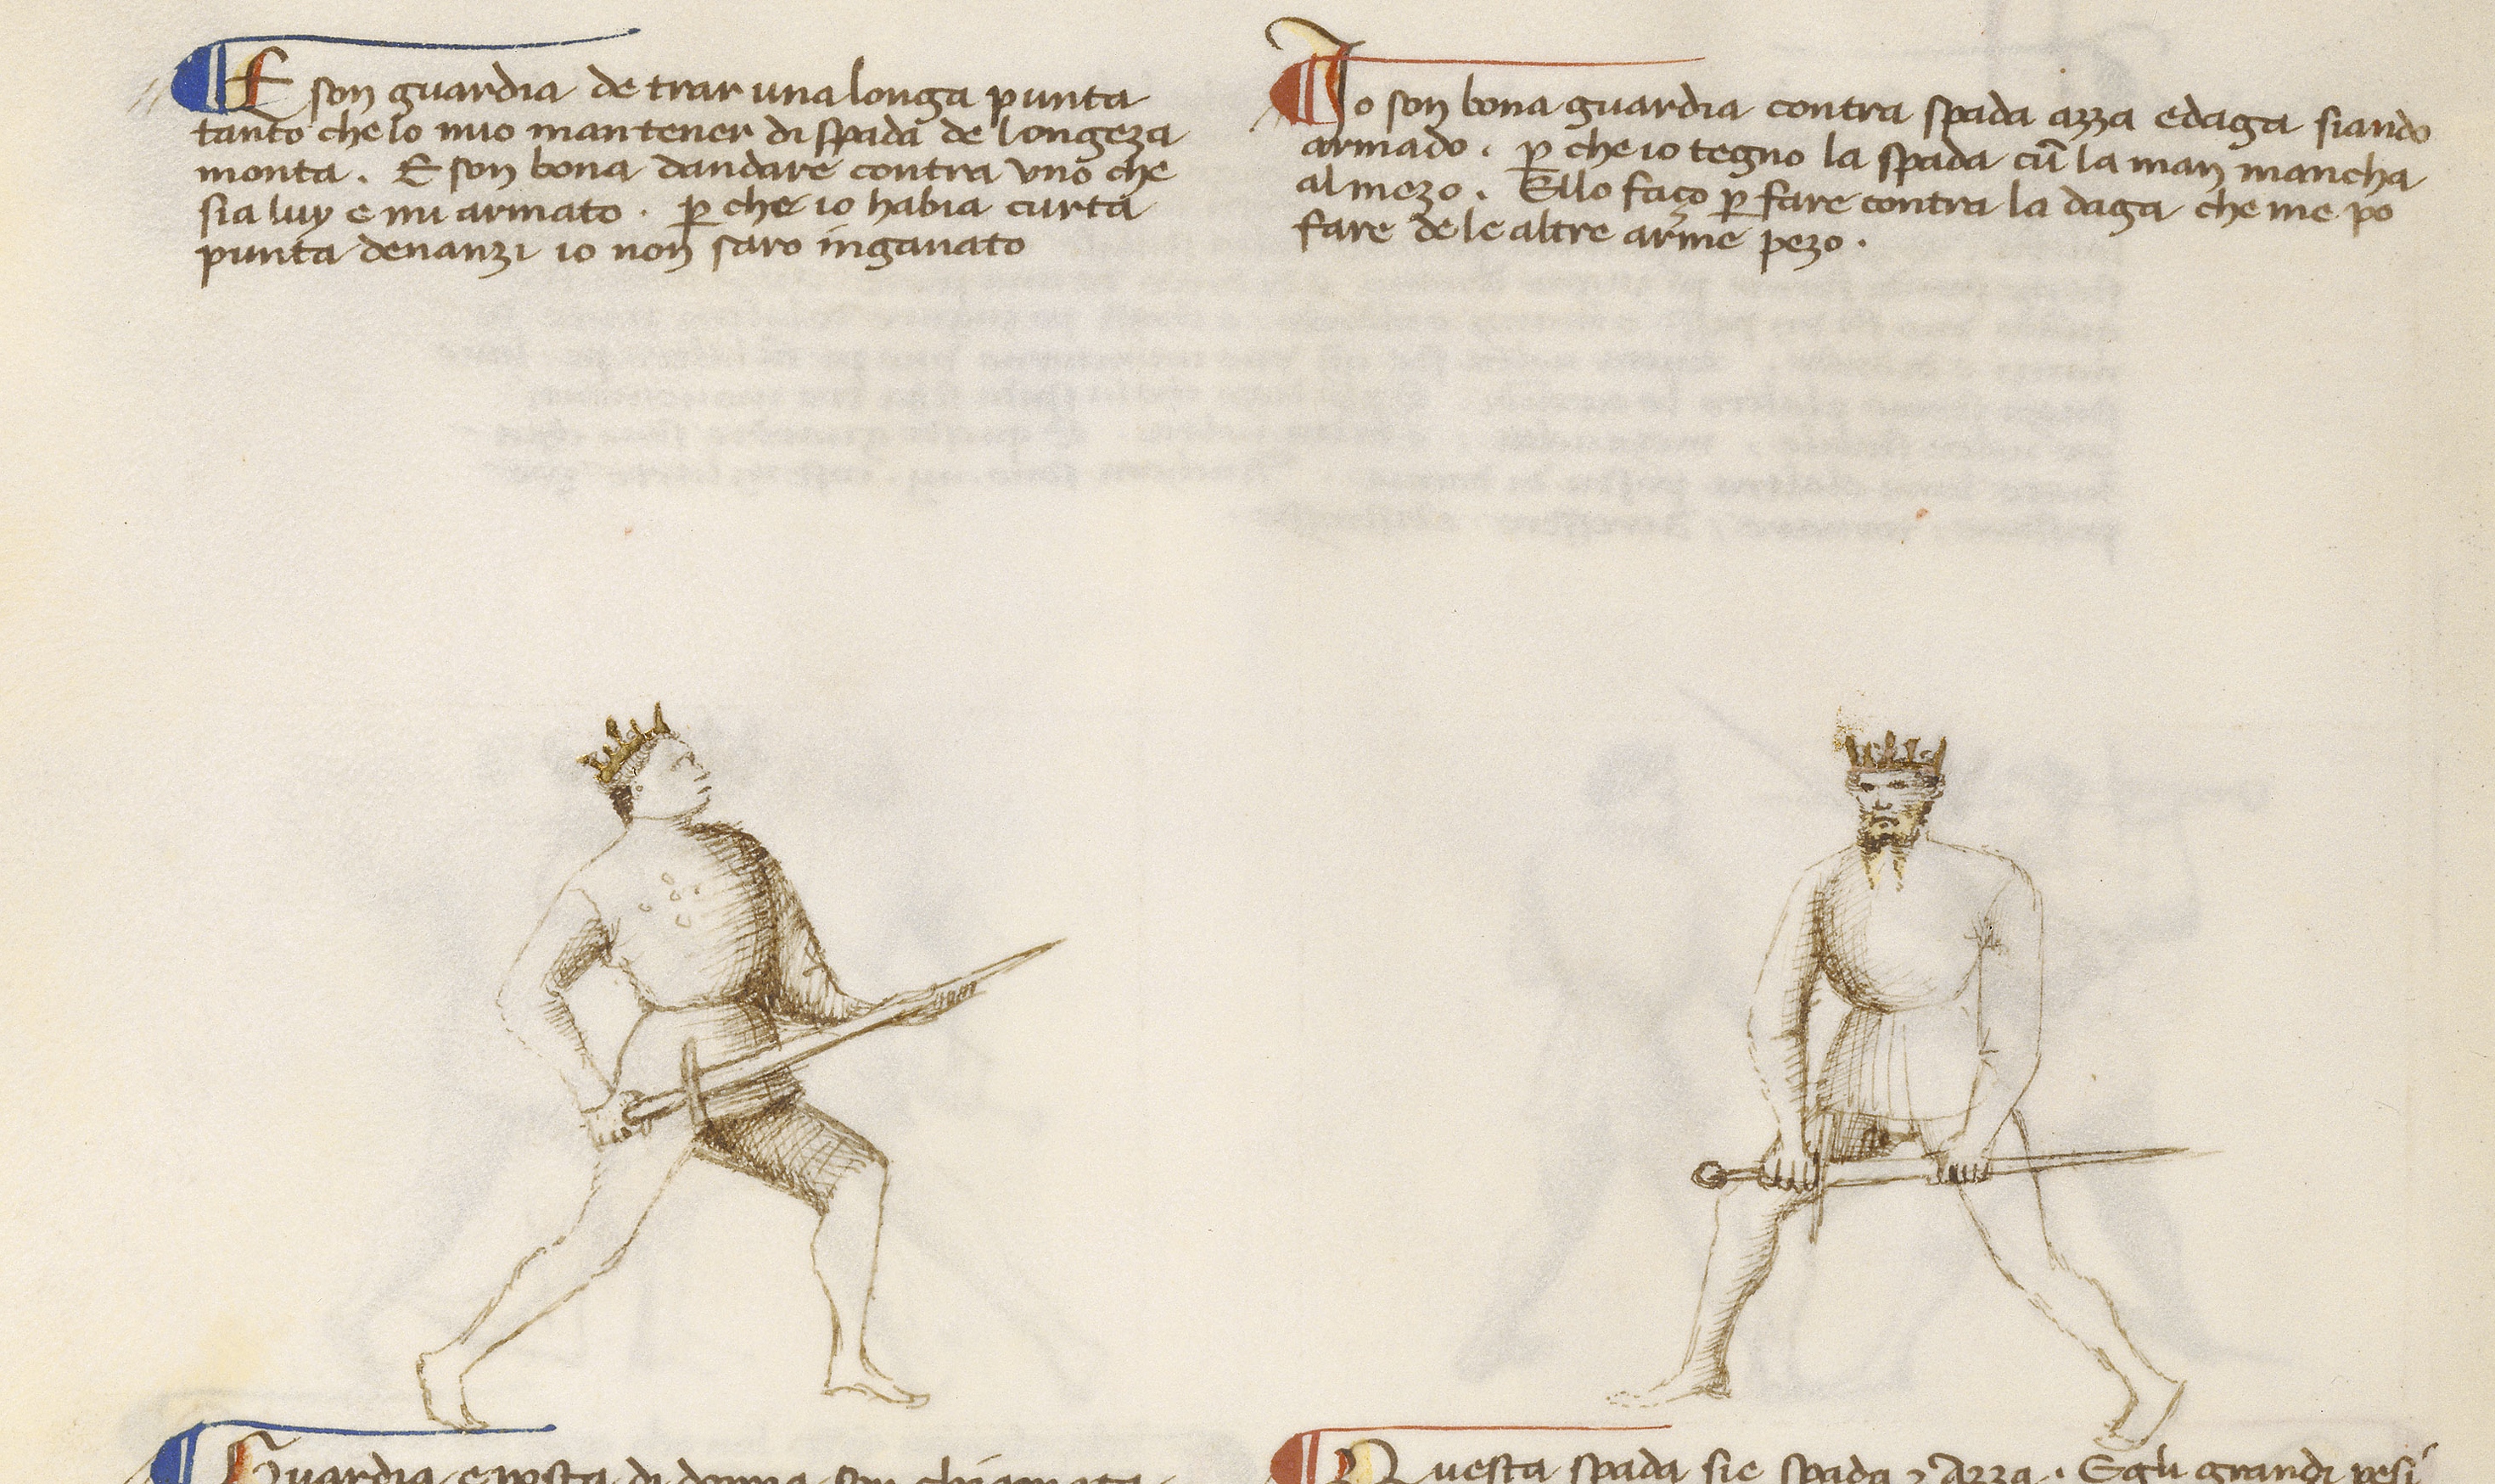 E son guardia de trar una longa punta
tanto che lo mio mantener di spada de longeza
monta. E son bona dandare contra uno che
sia luy e mi armato. p̱ che io habia curta
punta denanzi io non saro inganato
Io son bona guardia contra spada azza e daga siando
armado. p̱ che io tegno la spada cū la man mancha
al mezo. E llo faço p̱ fare contra la daga che me po
fare de le altre arme pezo.
Guardia e posta di donna son chiamata
Questa spada sie spada ⁊ Azza. E gli grandi pesi